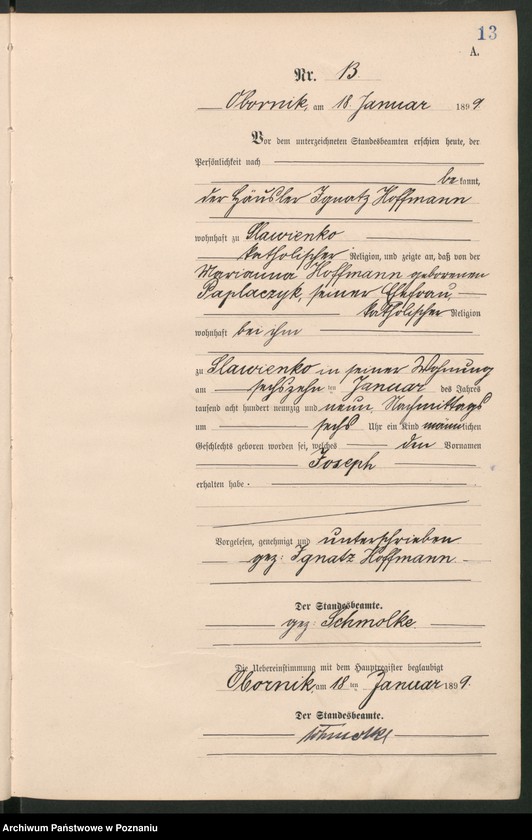 13
A.
Nr. 13.
Obornik, am 18. Januar 1899.
Vor dem unterzeichneten Standesbeamten erschien heute, der
Persönlichkeit nach
bekannt,
der Häusler Ignatz Hoffmann
wohnhaft zu Slawienko
katholischer Religion, und zeigte an, daß von der
Marianna Hoffmann geborenen
Paplaczyk, seiner Ehefrau,
katholischer Religion
wohnhaft bei ihm
zu Slawienko in seiner Wohnung
am sechszehn ten Januar des Jahres
tausend acht hundert neunzig und neun, Nachmittags
um sechs Uhr ein Kind männlichen
Geschlechts geboren worden sei, welches den Vornamen
Joseph
erhalten habe.
Vorgelesen, genehmigt und unterschrieben
gez: Ignatz Hoffmann.
Der Standesbeamte.
gez: Schmolke.
Die Uebereinstimmung mit dem Hauptregister beglaubigt
Obornik, am 18 ten Januar 1899.
Der Standesbeamte.
Schmolke
Archiwum Państwowe w Poznaniu